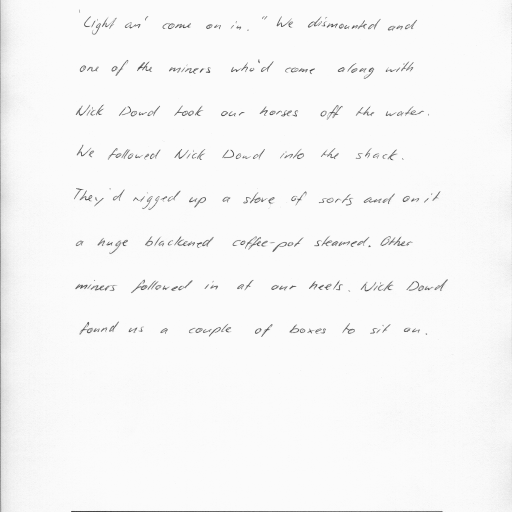 'Light an' come on in." We dismounted and
one of the miners who'd come along with
Nick Dowd took our horses off the water.
We followed Nick Dowd into the shack.
They'd rigged up a stove of sorts and on it
a huge blackened coffee-pot steamed. Other
miners followed in at our heels. Nick Dowd
found us a couple of boxes to sit on.